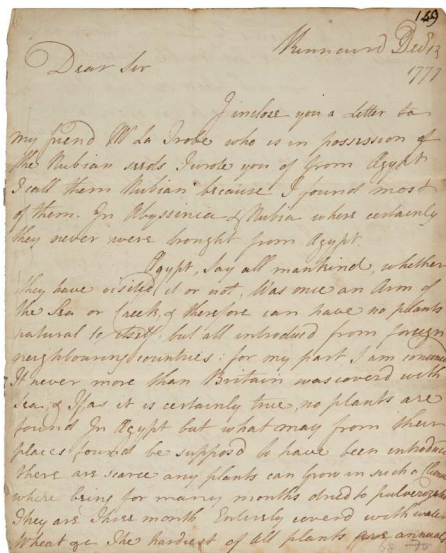 149
Kinnaird Dec. 13
1777
Dear Sir
I inclose you a Letter to
my friend Mr La Trobe who is in possession of
the Nubian seeds I wrote you of from Egypt
I call them Nubian because I found most
of them. In Abyssinia & Nubia where certainly
they never were brought from Egypt.
Egypt, say all mankind, whether
they have visited it or not, Was once an Arm of
the Sea or Creek, & therefore can have no plants
natural to itself but all introduced from foreign
neighbouring countries: for my part I am convinced
It never more than Britain was coverd with
Sea, & If as it is certainly true, no plants are
found In Egypt but what may from their
places found be supposd to have been introduced
there are scarce any plants can grow in such a
where being for many months dried to
They are three month Entirely coverd with water
Wheat &c The hardiest of all plants are annual